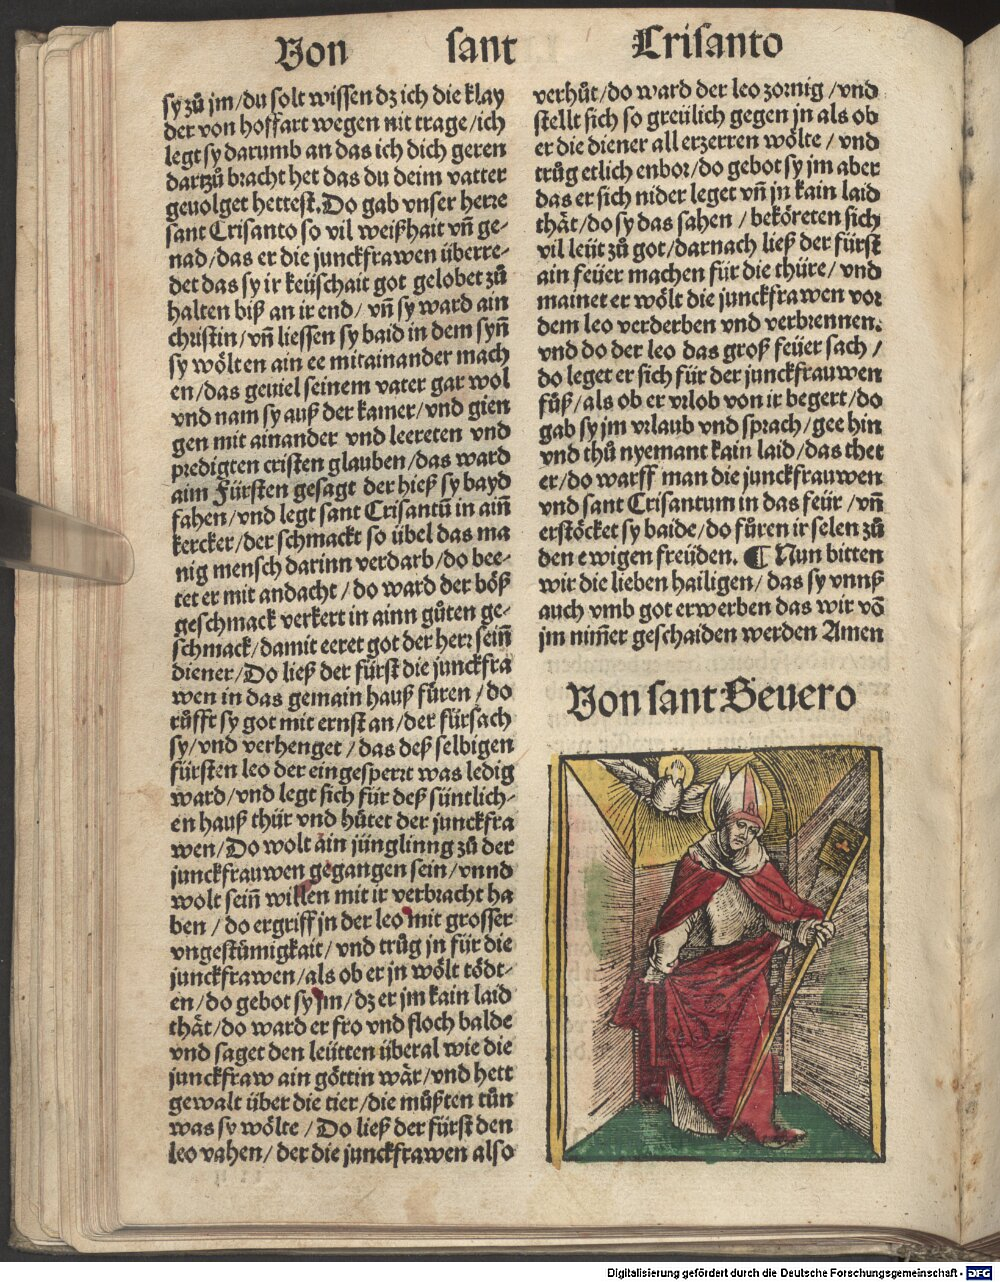 Von sant Crisanto
sy zů jm/du solt wissen dz ich die klay
der von hoffart wegen nit trage/ich
legt sy darumb an das ich dich geren
dartzů bracht het das du deim vatter
geuolget hettest. Do gab vnser herre
sant Crisanto so vil weißhait vn̄ ge⸗
nad/das er die junckfrawen überre⸗
det das sy ir keüschait got gelobet zů
halten biß an ir end/vn̄ sy ward ain
christin/vn̄ liessen sy baid in dem syn̄
sy wölten ain ee mitainander mach
en/das geuiel seinem vater gar wol
vnd nam sy auß der kamer/vnd gien
gen mit ainander vnd leereten vnd
predigten cristen glauben/das ward
aim Fürsten gesagt der hieß sy bayd
fahen/vnd legt sant Crisantū in ain̄
kercker/der schmackt so übel das ma
nig mensch darinn verdarb/do bee⸗
tet er mit andacht/do ward der böß
geschmack verkert in ainn gůten ge⸗
schmack/damit eeret got der herr sein̄
diener/Do ließ der fürst die junckfra
wen in das gemain hauß fůren/do
růfft sy got mit ernst an/der fürsach
sy/vnd verhenget/das deß selbigen
fürsten leo der eingesperrt was ledig
ward/vnd legt sich für deß süntlich⸗
en hauß thür vnd hůtet der junckfra
wen/Do wolt ain jünglinng zů der
junckfrauwen gegangen sein/vnnd
wolt sein̄ willen mit ir verbracht ha
ben/do ergriff jn der leo mit grosser
vngestümigkait/vnd trůg jn für die
junckfrawen/als ob er jn wölt tödt⸗
en/do gebot sy jm/dz er jm kain laid
thät/do ward er fro vnd floch balde
vnd saget den leütten überal wie die
junckfraw ain göttin wär/vnd hett
gewalt über die tier/die müßten tůn
was sy wölte/Do ließ der fürst den
leo vahen/der die junckfrawen also
verhůt/do ward der leo zornig/vnd
stellt sich so greülich gegen jn als ob
er die diener all erzerren wölte/vnd
trůg etlich enbor/do gebot sy jm aber
das er sich nider leget vn̄ jn kain laid
thät/do sy das sahen/beköreten sich
vil leüt zů got/darnach ließ der fürst
ain feüer machen für die thüre/vnd
mainet er wölt die junckfrawen vor
dem leo verderben vnd verbrennen.
vnd do der leo das groß feüer sach/
do leget er sich für der junckfrauwen
fůß/als ob er vrlob von ir begert/do
gab sy jm vrlaub vnd sprach/gee hin
vnd thů nyemant kain laid/das thet
er/do warff man die junckfrauwen
vnd sant Crisantum in das feür/vn̄
erstöcket sy baide/do fůren ir selen zů
den ewigen freüden. ¶ Nun bitten
wir die lieben hailigen/das sy vnnß
auch vmb got erwerben das wir vō
jm nim̄er geschaiden werden Amen
Von sant Seuero
Digitalisierung gefördert durch die Deutsche Forschungsgemeinschaft - DFG